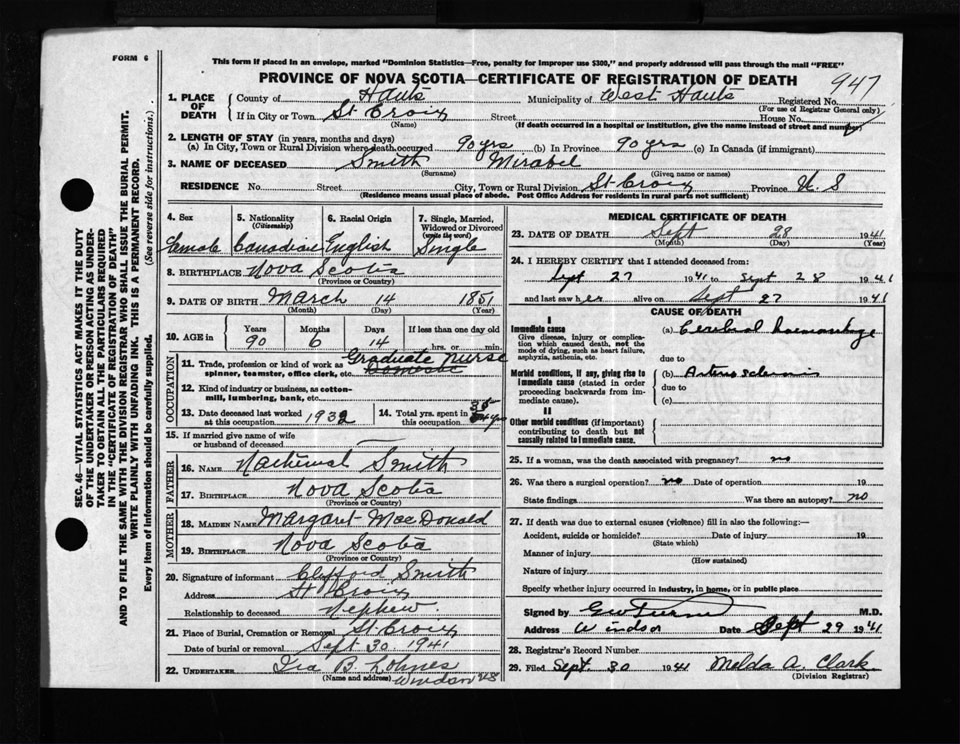 FORM 6
This form if placed in an envelope, marked "Dominion Statistics—Free, penalty for improper use $300," and properly addressed will pass through the mail "FREE"
PROVINCE OF NOVA SCOTIA—CERTIFICATE OF REGISTRATION OF DEATH
947
1. PLACE OF DEATH
County of Hants Municipality of West Hants Registered No.
(For use of Registrar General only)
If in City or Town St Croix Street House No.
(Name) (If death occurred in a hospital or institution, give the name instead of street and number)
2. LENGTH OF STAY (in years, months and days)
(a) In City, Town or Rural Division where death occurred 90 yrs (b) In Province 90 yrs (c) In Canada (if immigrant)
3. NAME OF DECEASED Smith Mirabel
(Surname) (Given name or names)
RESIDENCE No. Street City, Town or Rural Division St Croix Province N. S
(Residence means usual place of abode. Post Office Address for residents in rural parts not sufficient)
4. Sex 5. Nationality (Citizenship) 6. Racial Origin 7. Single, Married, Widowed or Divorced (write the word)
Female Canadian English Single
8. BIRTHPLACE Nova Scotia
(Province or Country)
9. DATE OF BIRTH March 14 1851
(Month) (Day) (Year)
10. AGE in Years Months Days If less than one day old
90 6 14 hrs. or min.
OCCUPATION
11. Trade, profession or kind of work as spinner, teamster, office clerk, etc. Graduate Nurse Domestic
12. Kind of industry or business, as cotton-mill, lumbering, bank, etc.
13. Date deceased last worked at this occupation 1932
14. Total yrs. spent in this occupation 35
15. If married give name of wife or husband of deceased
FATHER
16. NAME Smith
17. BIRTHPLACE Nova Scotia
(Province or Country)
MOTHER
18. MAIDEN NAME Margaret MacDonald
19. BIRTHPLACE Nova Scotia
(Province or Country)
20. Signature of informant Clifford Smith
Address St Croix
Relationship to deceased Nephew.
21. Place of Burial, Cremation or Removal St Croix
Date of burial or removal Sept 30. 1941
22. UNDERTAKER Ira B. Lohnes
(Name and address) Windsor NS
MEDICAL CERTIFICATE OF DEATH
23. DATE OF DEATH Sept 28 1941
(Month) (Day) (Year)
24. I HEREBY CERTIFY that I attended deceased from:
Sept 27 1941 to Sept 28 1941
and last saw her alive on Sept 27 1941
CAUSE OF DEATH
I
Immediate cause
Give disease, injury or complication which caused death, not the mode of dying, such as heart failure, asphyxia, asthenia, etc.
(a) Cerebral haemorrhage
due to
Morbid conditions, if any, giving rise to immediate cause (stated in order proceeding backwards from immediate cause).
(b) Arterio sclerosis
due to
(c)
II
Other morbid conditions (if important) contributing to death but not causally related to immediate cause.
25. If a woman, was the death associated with pregnancy? no
26. Was there a surgical operation? no Date of operation 19
State findings Was there an autopsy? no
27. If death was due to external causes (violence) fill in also the following:—
Accident, suicide or homicide? Date of injury 19
(State which)
Manner of injury
(How sustained)
Nature of injury
Specify whether injury occurred in industry, in home, or in public place
Signed by M.D.
Address Windsor Date Sept 29 1941
28. Registrar's Record Number
29. Filed Sept. 30 1941 Melda A. Clark
(Division Registrar)
SEC. 46—VITAL STATISTICS ACT MAKES IT THE DUTY
OF THE UNDERTAKER OR PERSON ACTING AS UNDER-
TAKER TO OBTAIN ALL THE PARTICULARS REQUIRED
IN THE "CERTIFICATE OF REGISTRATION OF DEATH"
AND TO FILE THE SAME WITH THE DIVISION REGISTRAR WHO SHALL ISSUE THE BURIAL PERMIT.
WRITE PLAINLY WITH UNFADING INK. THIS IS A PERMANENT RECORD.
Every item of information should be carefully supplied. (See reverse side for instructions.)